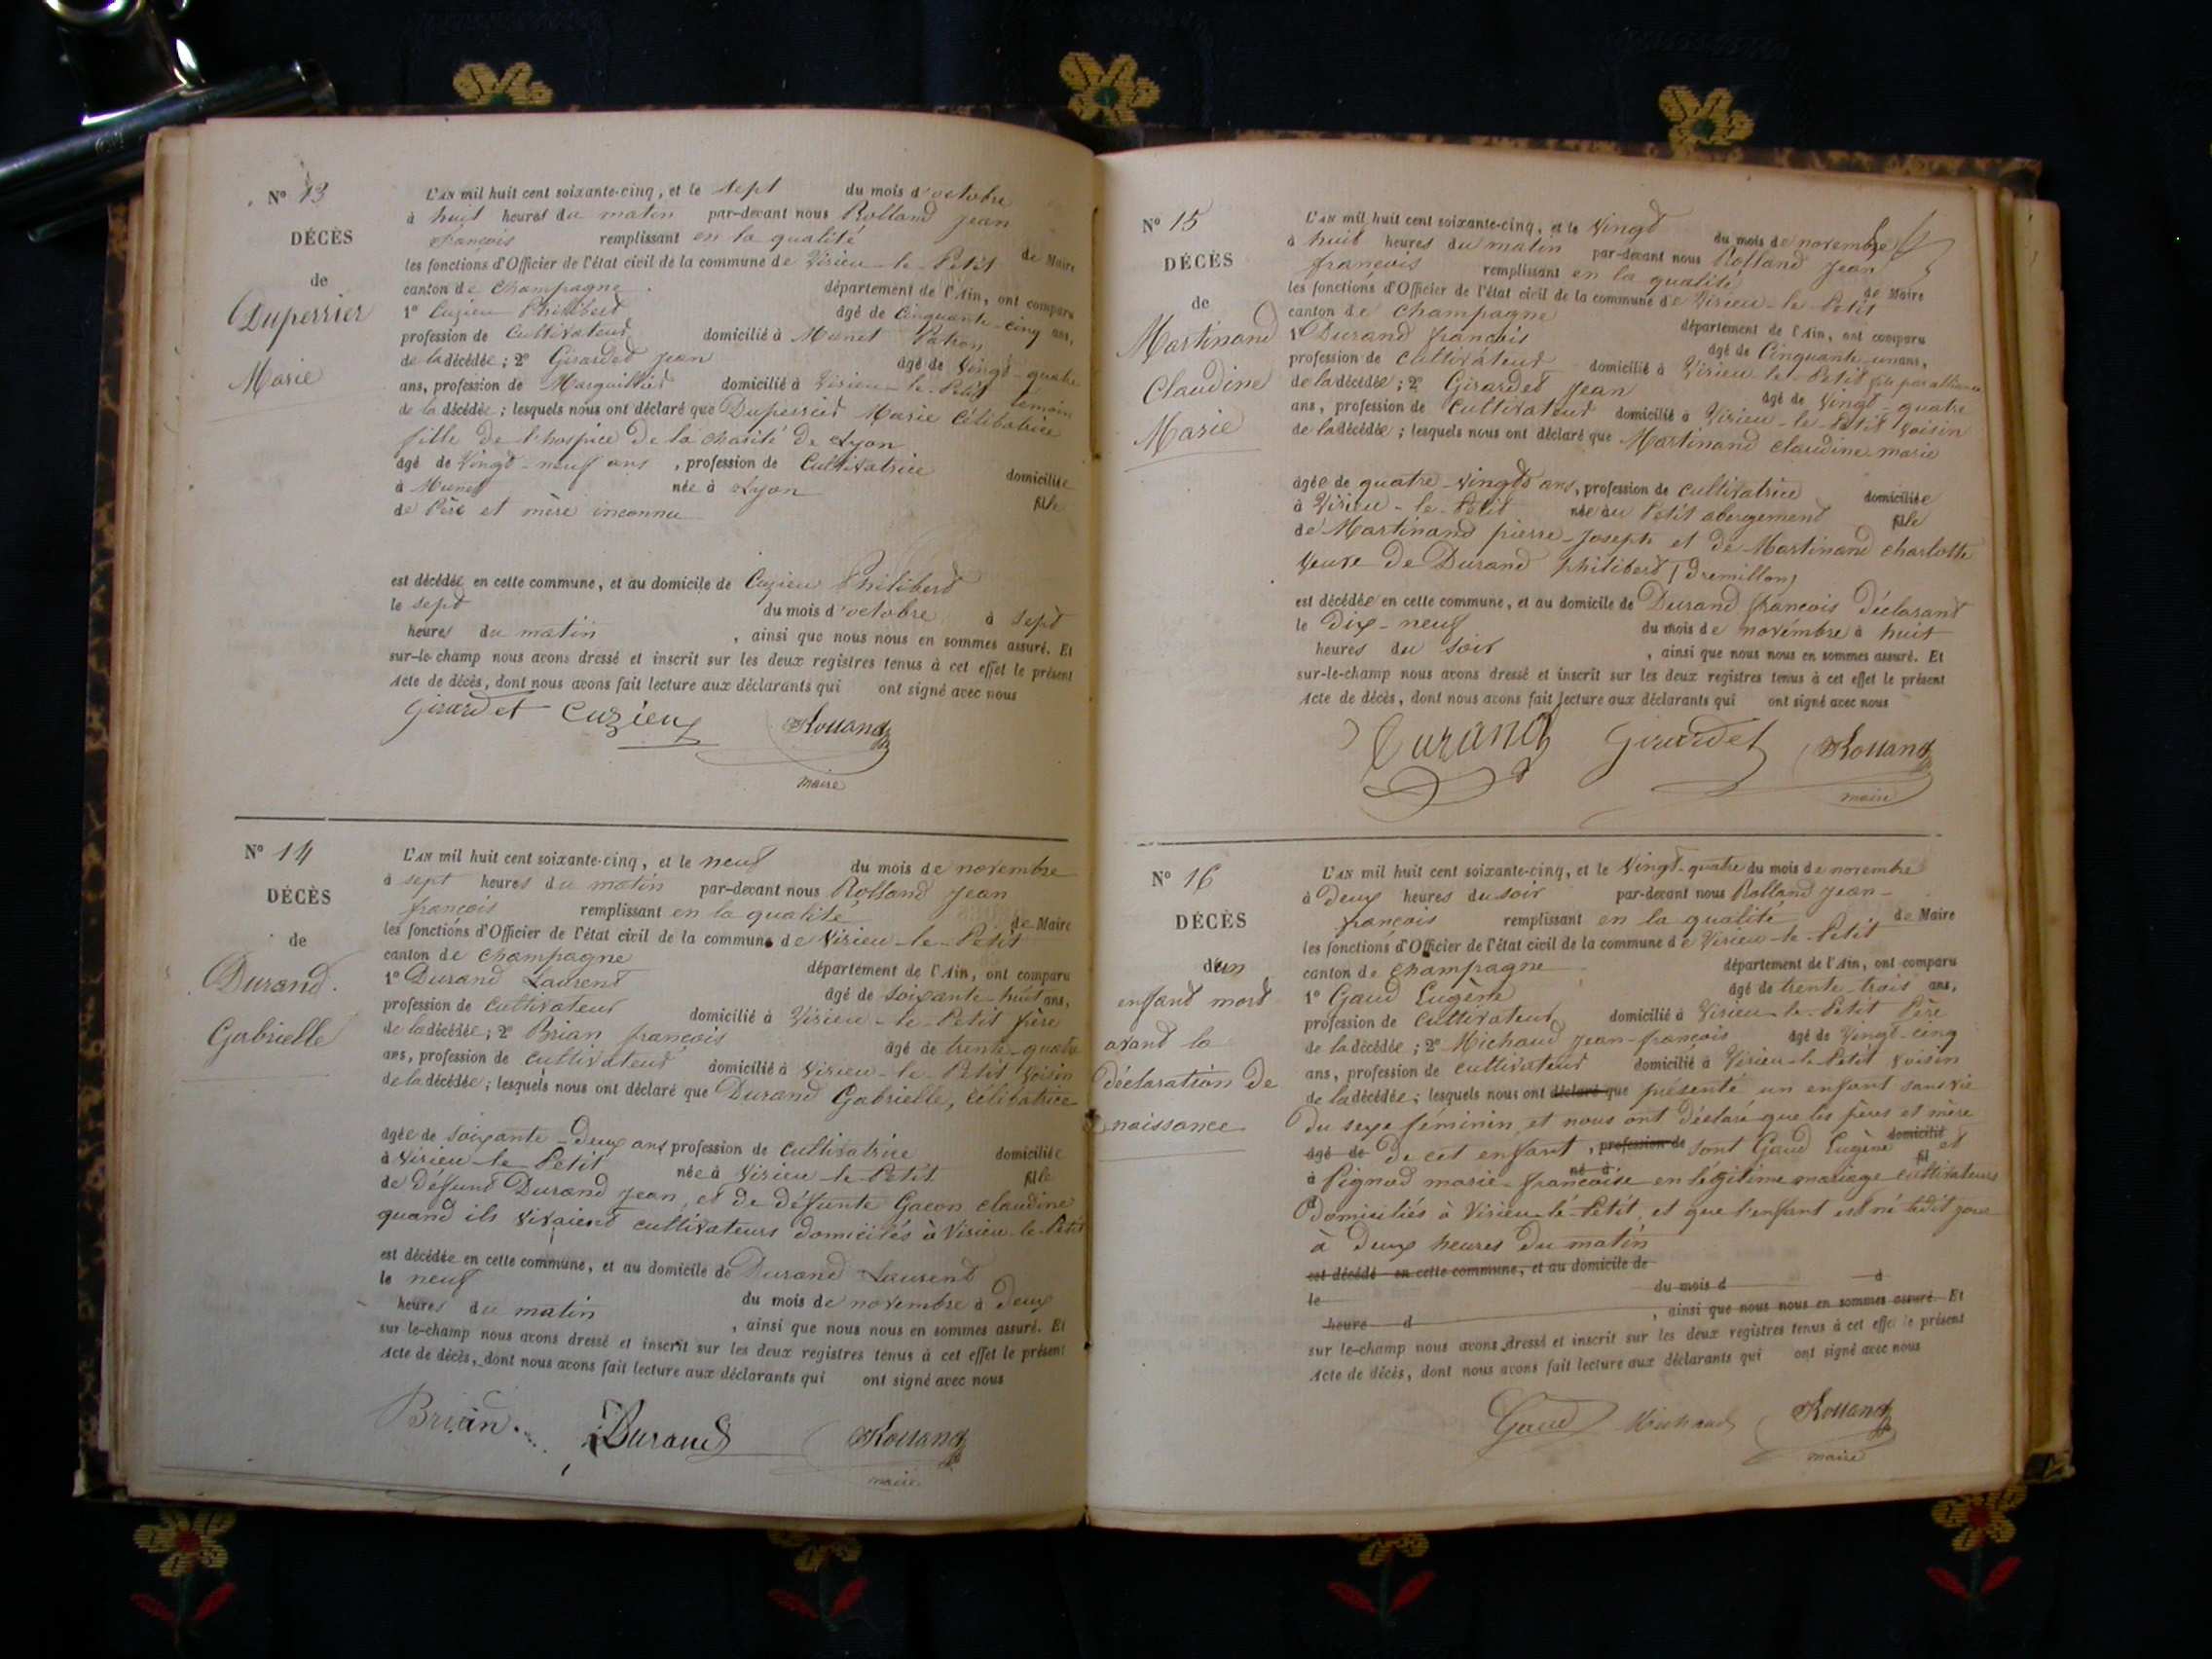 N° 13
DÉCÈS
de
Duperrier
Marie
L'AN mil huit cent soixante-cinq, et le sept du mois d'octobre
à huit heures du matin par-devant nous Rolland Jean
françois remplissant en la qualité de Maire
les fonctions d'Officier de l'état civil de la commune de Virieu-le-Petit
canton de Champagne département de l'Ain, ont comparu
1° Cuzieu Philibert âgé de Cinquante-cinq ans,
profession de Cultivateur domicilié à Munet Patron
de la décédée ; 2° Girardet Jean âgé de Vingt-quatre
ans, profession de Marguillier domicilié à Virieu-le-Petit témoin
de la décédée ; lesquels nous ont déclaré que Duperrier Marie Célibatrice
fille de l'hospice de la charité de Lyon
âgé de Vingt-neuf ans, profession de Cultivatrice domiciliée
à Munet née à Lyon fille
de Père et mère inconnu
est décédée en cette commune, et au domicile de Cuzieu Philibert
le sept du mois d'octobre à sept
heures du matin, ainsi que nous nous en sommes assuré. Et
sur-le-champ nous avons dressé et inscrit sur les deux registres tenus à cet effet le présent
Acte de décès, dont nous avons fait lecture aux déclarants qui ont signé avec nous
Girardet Cuzieu Rolland
maire
N° 14
DÉCÈS
de
Durand
Gabrielle
L'AN mil huit cent soixante-cinq, et le neuf du mois de novembre
à sept heures du matin par-devant nous Rolland Jean
françois remplissant en la qualité de Maire
les fonctions d'Officier de l'état civil de la commune de Virieu-le-Petit
canton de Champagne département de l'Ain, ont comparu
1° Durand Laurent âgé de soixante-huit ans,
profession de Cultivateur domicilié à Virieu-le-Petit frère
de la décédée ; 2° Brian françois âgé de trente-quatre
ans, profession de cultivateur domicilié à Virieu-le-Petit Voisin
de la décédée ; lesquels nous ont déclaré que Durand Gabrielle, Célibatrice
âgée de soixante-deux ans profession de cultivatrice domiciliée
à Virieu-le-Petit née à Virieu-le-Petit fille
de défunt Durand Jean, et de défunte Gacon Claudine
quand ils vivaient cultivateurs domicilés à Virieu-le-Petit
est décédée en cette commune, et au domicile de Durand Laurent
le neuf du mois de novembre à deux
heures du matin, ainsi que nous nous en sommes assuré. Et
sur le-champ nous avons dressé et inscrit sur les deux registres tenus à cet effet le présent
Acte de décès, dont nous avons fait lecture aux déclarants qui ont signé avec nous
Brian. Durand Rolland
maire
N° 15
DÉCÈS
de
Martinand
Claudine
Marie
L'AN mil huit cent soixante-cinq, et le Vingt du mois de novembre
à huit heures du matin par-devant nous Rolland Jean
françois remplissant en la qualité de Maire
les fonctions d'Officier de l'état civil de la commune de Virieu-le-Petit
canton de Champagne département de l'Ain, ont comparu
1° Durand françois âgé de Cinquante-un ans,
profession de cultivateur domicilié à Virieu-le-Petit fils par alliance
de la décédée ; 2° Girardet Jean âgé de Vingt-quatre
ans, profession de Cultivateur domicilié à Virieu-le-Petit voisin
de la décédée ; lesquels nous ont déclaré que Martinand Claudine-marie
âgée de quatre-vingts ans, profession de cultivatrice domiciliée
à Virieu-le-Petit née au Petit abergement fille
de Martinand pierre-Joseph et de Martinand charlotte
veuve de Durand Philibert (Dremillon)
est décédée en cette commune, et au domicile de Durand françois déclarant
le Dix-neuf du mois de novembre à huit
heures du soir, ainsi que nous nous en sommes assuré. Et
sur-le-champ nous avons dressé et inscrit sur les deux registres tenus à cet effet le présent
Acte de décès, dont nous avons fait lecture aux déclarants qui ont signé avec nous
Durand Girardet Rolland
maire
N° 16
DÉCÈS
d'un
enfant mort
avant la
déclaration de
naissance
L'AN mil huit cent soixante-cinq, et le Vingt-quatre du mois de novembre
à deux heures du soir par-devant nous Rolland Jean-
françois remplissant en la qualité de Maire
les fonctions d'Officier de l'état civil de la commune de Virieu-le-Petit
canton de Champagne département de l'Ain, ont comparu
1° Gaud Eugène âgé de trente-trois ans,
profession de Cultivateur domicilié à Virieu-le-Petit Père
de la décédée ; 2° Michaud Jean-françois âgé de Vingt-cinq
ans, profession de cultivateur domicilié à Virieu-le-Petit voisin
de la décédée ; lesquels nous ont déclaré que présenté un enfant sans vie
du sexe féminin et nous ont déclaré que les pères et mère
âgé de de cet enfant, profession de sont Gaud Eugène domicilié et
à Pignod marie-françoise né à en légitime mariage fil cultivateurs
d domiciliés à Virieu-le-Petit, et que l'enfant est né ledit jour
à deux heures du matin
est décédé en cette commune, et au domicile de
le du mois d à
heure d, ainsi que nous nous en sommes assuré. Et
sur le-champ nous avons dressé et inscrit sur les deux registres tenus à cet effet le présent
Acte de décès, dont nous avons fait lecture aux déclarants qui ont signé avec nous
Gaud Michaud Rolland
maire